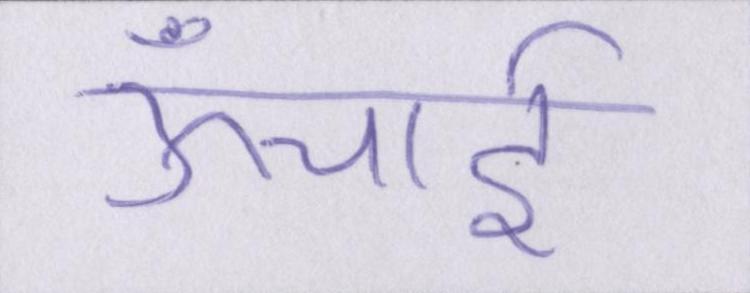 ऊँचाई